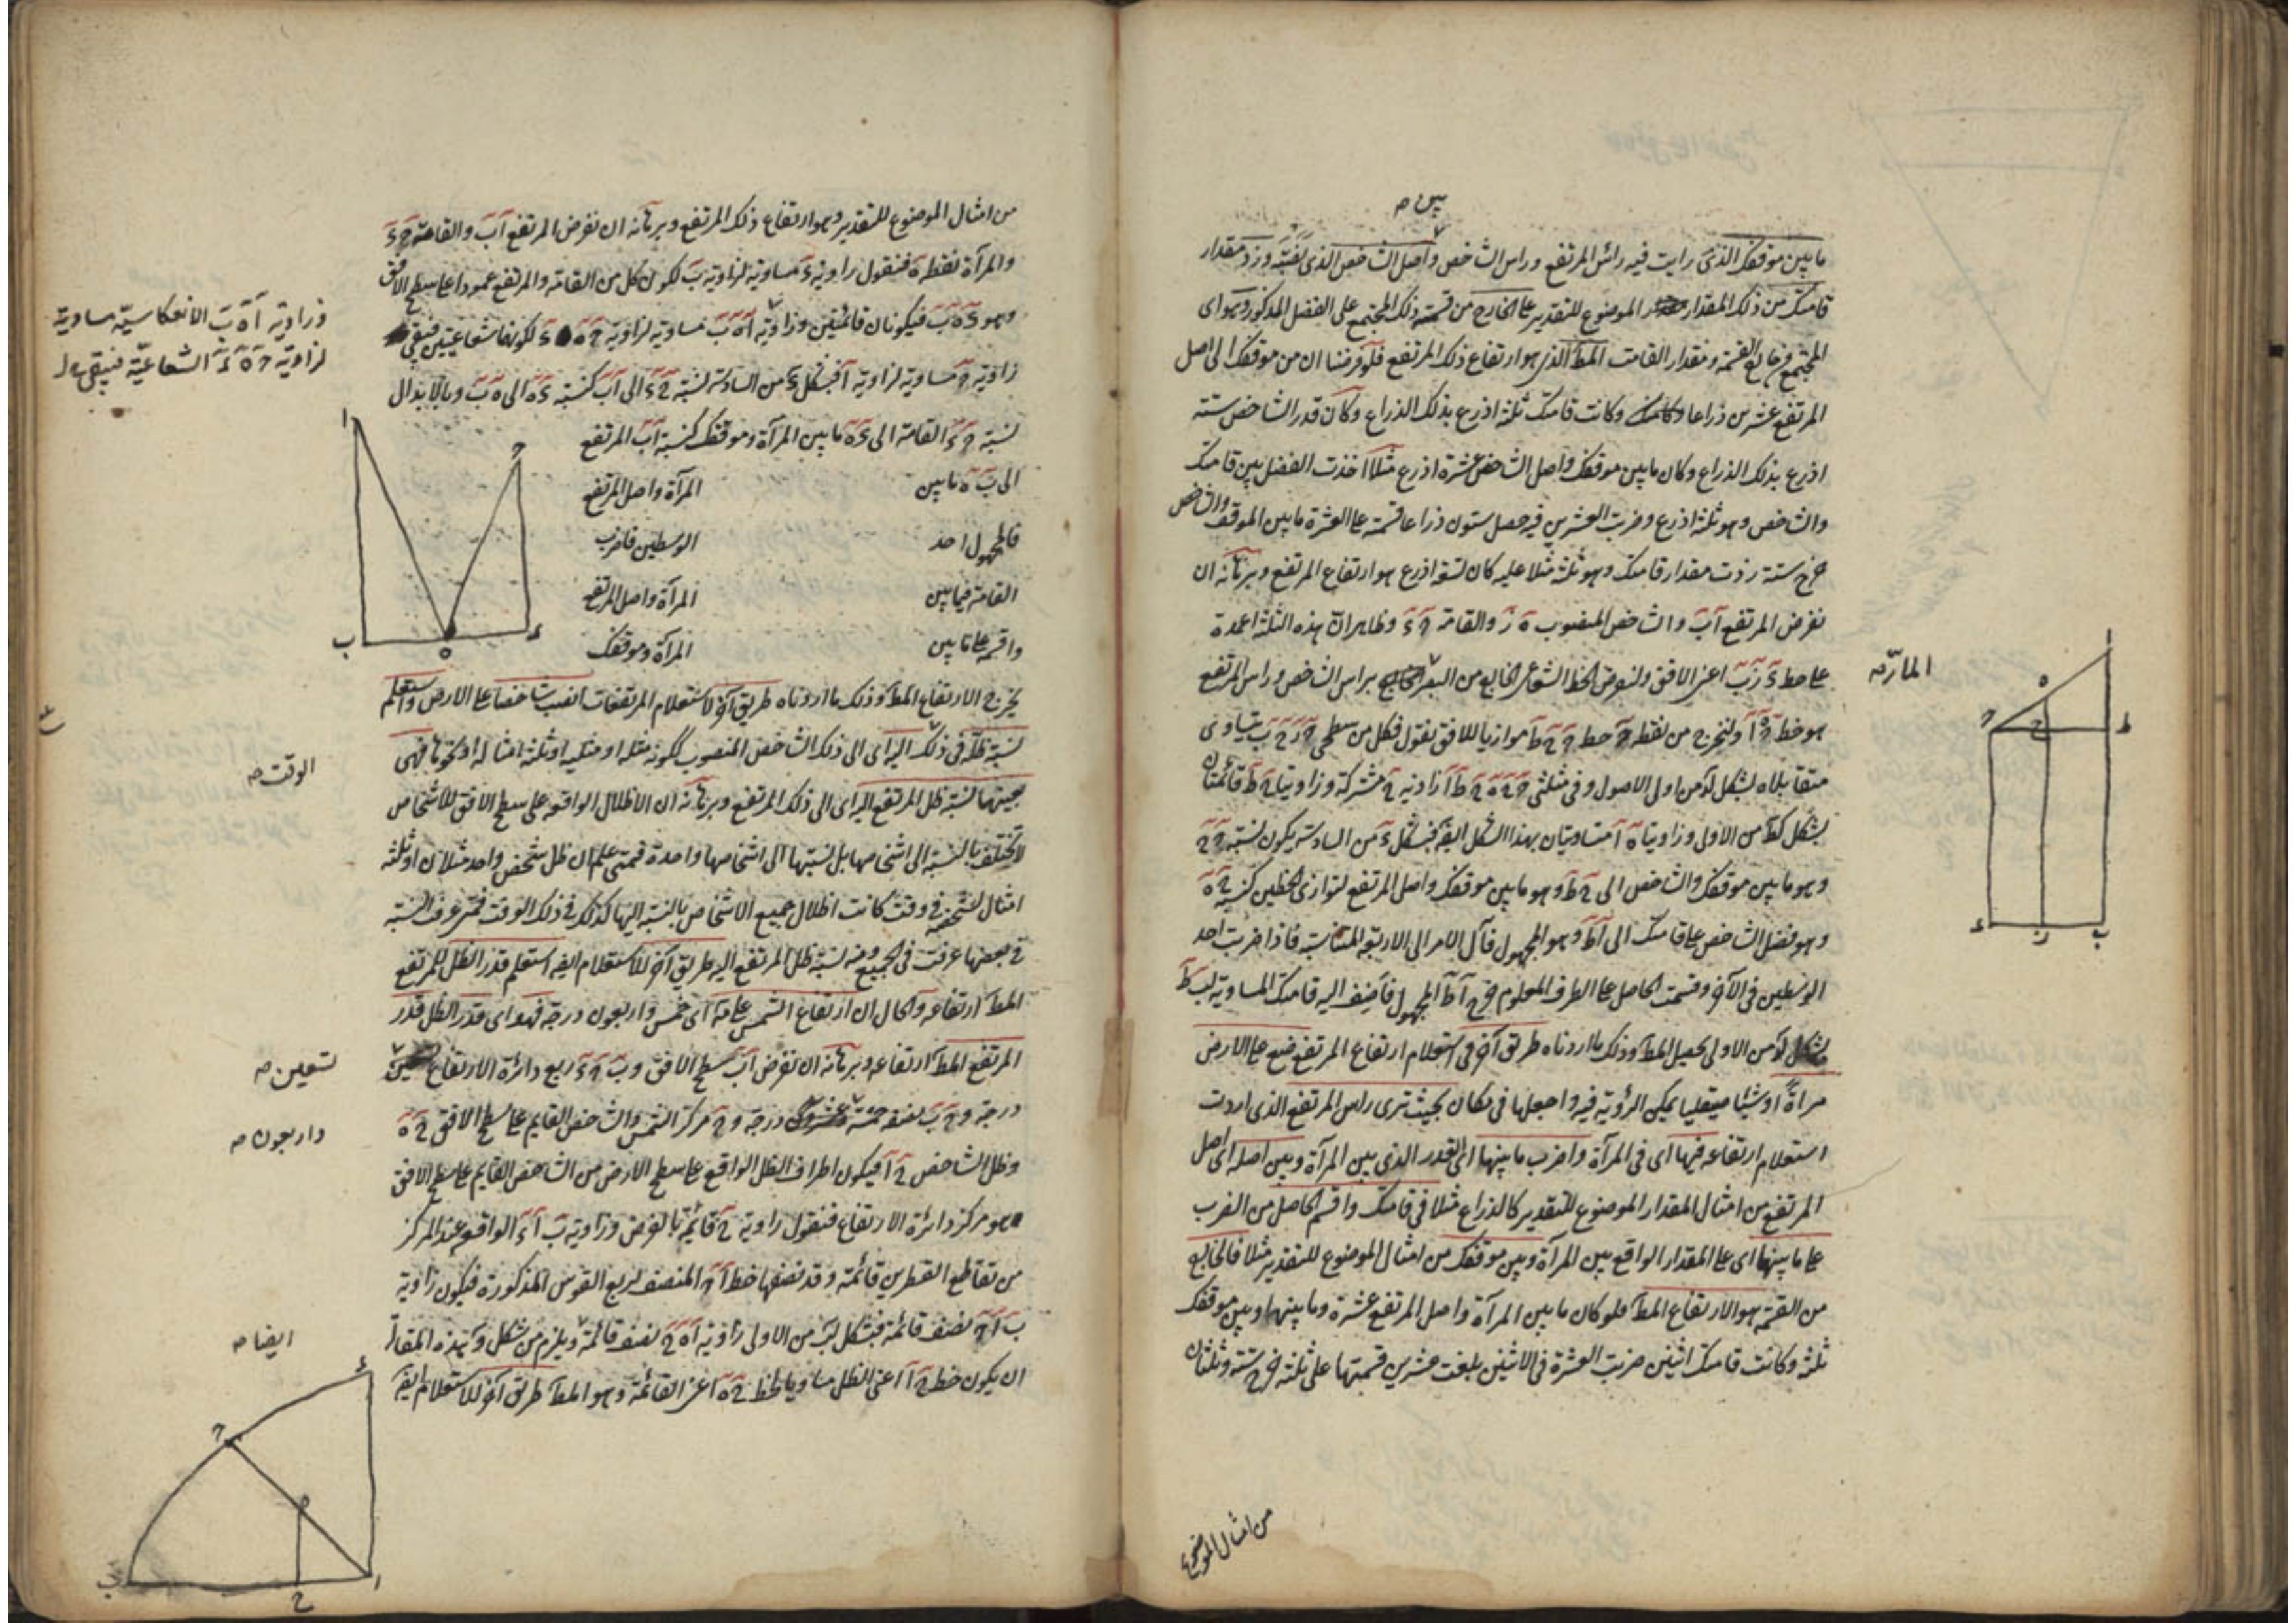 بين صح
ما بين موقفك الذى رايت فيه راس المرتفع وراس الشاخص واصل الشاخص الذى نصبته وزد مقدار
قامتك من ذلك المقدار الموضوع للتقدير على الخارج من قسمة ذلك المجتمع على الفضل المذكور وهو اى
المجتمع من خارج القسمة ومقدار القامت المط الذى هو ارتفاع ذلك المرتفع فلو فرضنا ان من موقفك الى اصل
المرتفع عشرين ذراعا وكانت قامتك ثلثة اذرع بذلك الذراع وكان قدر الشاخص ستة
اذرع بذلك الذراع وكان ما بين موقفك واصل الشاخص عشرة اذرع مثلا اخذت الفضل بين قامتك
والشاخص وهو ثلثة اذرع وضربت العشرين فيه حصل ستون ذراعا قسمته على العشرة ما بين الموقف والشاخص
خرج ستة زدت مقدار قامتك وهو ثلثة مثلا عليه كان تسعة اذرع هو ارتفاع المرتفع وبرهانه ان
نفرض المرتفع اب والشاخص المنصوب ه ز والقامة ح ء وظاهر ان هذه الثلثة اعمدة
على خط ء ز ب اعنى الافق ولنفرض الخط الشعاعى الخارج من البصر براس الشاخص وراس المرتفع
المارّ صح
هو خط ح ه ا ولنخرج من نقطة ح خط ح ح ط موازيا للافق نقول فكل من سطحى ح ز ح ب يتساوى
متقابلاه بشكل لد من اولى الاصول وفى مثلثى ح ح ه ح ط ا زاوية ح مشتركة وزاويتا ح ط قائمتان
بشكل كط من الاولى وزاويتا ه ا متساويتان بهذا الشكل ايضه فبشكل ء من السادسة يكون نسبة ح ح
وهو ما بين موقفك والشاخص الى ح ط وهو ما بين موقفك واصل المرتفع لتوازى الخطين كنسبة ح ه
وهو فضل الشاخص على قامتك الى ا ط وهو المجهول فآل الامر الى الاربعة المتناسبة فاذا ضربت احد
الوسطين فى الآخر وقسمت الحاصل على الطرف المعلوم خرج ا ط المجهول فاضف اليه قامتك المساوية لب ط
بشكل لد من الاولى يحصل المط وذلك ما اردناه طريق آخر فى استعلام ارتفاع المرتفع ضع على الارض
مراة او شيئا صيقليا يمكن الرؤية فيه واجعلها فى مكان بحيث ترى راس المرتفع الذى اردت
استعلام ارتفاعه فيها اى فى المرآة واضرب ما بينها اى القدر الذى بين المرآة وبين اصله اى اصل
المرتفع من امثال المقدار الموضوع للتقدير كالذراع مثلا فى قامتك واقسم الحاصل من الضرب
على ما بينها اى على المقدار الواقع بين المرآة وبين موقفك من امثال الموضوع للتقدير مثلا فالخارج
من القسمة هو الارتفاع المط فلو كان ما بين المرآة واصل المرتفع عشرة وما بينها وبين موقفك
ثلثة وكانت قامتك اثنين ضربت العشرة فى الاثنين بلغت عشرين قسمتها على ثلثة خرج ستة وثلثان
من امثال الموضوع
من امثال الموضوع للتقدير وهو ارتفاع ذلك المرتفع وبرهانه ان نفرض المرتفع اب والقامة ح ء
والمرآة نقطة ه فنقول زاوية ء مساوية لزاوية ب لكون كل من القامة والمرتفع عمودا على سطح الافق
وهو ء ه ب فيكونان قائمتين وزاوية ا ه ب مساوية لزاوية ح ه ء لكونهما شعاعيتين فيبقى
وزاوية ا ه ب الانعكاسيّة مساوية
لزاوية ح ه ء الشعاعيّة فيبقى
زاوية ح مساوية لزاوية ا فبشكل ء من السادسة نسبة ح ء الى اب كنسبة ء ه الى ه ب وبالابدال
نسبة ح ء القامة الى ء ه ما بين المرآة وموقفك كنسبة اب المرتفع
الى ب ه ما بين المرآة واصل المرتفع
فالمجهول احد الوسطين فاضرب
القامة فيما بين المرآة واصل المرتفع
واقسمه على ما بين المرآة وموقفك
يخرج الارتفاع المط وذلك ما اردناه طريق آخر لاستعلام المرتفعات انصب شاخصا على الارض واستعلم
نسبة ظله فى ذلك الى ذلك الشاخص المنصوب ككونه مثله او مثليه او ثلثة امثاله او نحوها فهى
الوقت صح
بعينها نسبة ظل المرتفع الى ذلك المرتفع وبرهانه ان الاظلال الواقعة على سطح الافق للاشخاص
لا تختلف بالنسبة الى اشخاصها بل نسبتها الى اشخاصها واحدة فمتى علم ان ظل شخص واحد مثلان او ثلثة
امثال لشخصه فى وقت كانت اظلال جميع الاشخاص بالنسبة اليها كذلك فى ذلك الوقت فمتى عرفت النسبة
فى بعضها عرفت فى الجميع ومنه نسبة ظل المرتفع اليه طريق آخر للاستعلام ايضه استعلم قدر الظل للمرتفع
المط ارتفاعه والحال ان ارتفاع الشمس على مه اى خمس واربعون درجة فهو اى قدر الظل قدر
المرتفع المط ارتفاعه وبرهانه ان نفرض اب سطح الافق وب ح ء ربع دائرة الارتفاع
تسعين صح
درجة وح ب نصفه خمسة درجة وح مركز الشمس والشاخص القايم على سطح الافق ح ه
واربعون صح
وظل الشاخص ح ا فيكون اطراف الظل الواقع على سطح الارض من الشاخص القايم على سطح الافق
هو مركز دائرة الارتفاع فنقول زاوية ح قائمة بالفرض وزاوية ب ا ء الواقعة عند المركز
من تقاطع القطرين قائمة وقد نصفها خط ا ح المنصف لربع القوس المذكورة فيكون زاوية
ب ا ح نصف قائمة فبشكل لب من الاولى زاوية ا ه ح نصف قائمة ويلزم من شكل و بهذه المقالة
ايضا صح
ان يكون خط ح ا اعنى الظل مساويا لخط ح ه اعنى القائمة وهو المط طريق آخر للاستعلام ايضه